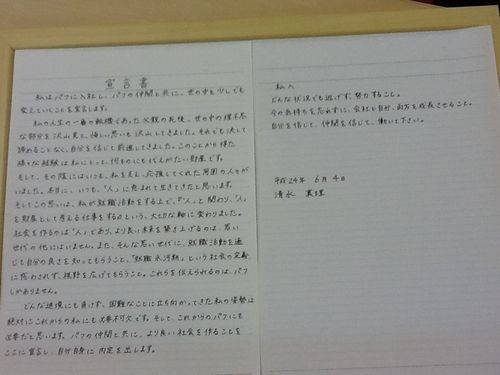 宣言書
私はパフに入社し、パフの仲間と共に、世の中を少しでも
変えていくことを宣言します。
私の人生の一番の転機であった父親の死後、世の中の理不尽
な部分を沢山見て、悔しい思いも沢山してきました。それでも決して
諦めることなく、自分を信じて前進してきました。このことから得た
様々な経験は私にとって、何ものにも代えがたい財産です。
そして、その陰にはいつも、私を支え、応援してくれた周囲の人々が
いました。本当に、いつも、「人」に恵まれて生きてきたと思います。
そしてこの思いは、私が就職活動をする上で、『「人」と関わり、「人」
を財産として考える仕事をする』という、大切な軸に変わりました。
社会を作るのは「人」であり、より良い未来を築き上げるのは、若い
世代の他にはいません。また、そんな若い世代に、就職活動を通
じて自分の良さを知ってもらうこと、「就職氷河期」という社会の定義
に惑わされず、視野を広げてもらうこと。これらを伝えられるのは、パフ
しかありません。
どんな逆境にも負けず、困難なことに立ち向かってきた私の姿勢は
絶対にこれからの私にも必要不可欠です。そして、これからのパフにも
必要だと思います。パフの仲間と共に、より良い社会を作ることを
ここに宣言し、自分自身に内定を出します。
私へ
どんな状況でも逃げず、努力すること。
今の気持ちを忘れずに、会社と自分、両方を成長させること。
自分を信じて、仲間を信じて、働いて下さい。
平成24年 6月4日
清水 真理